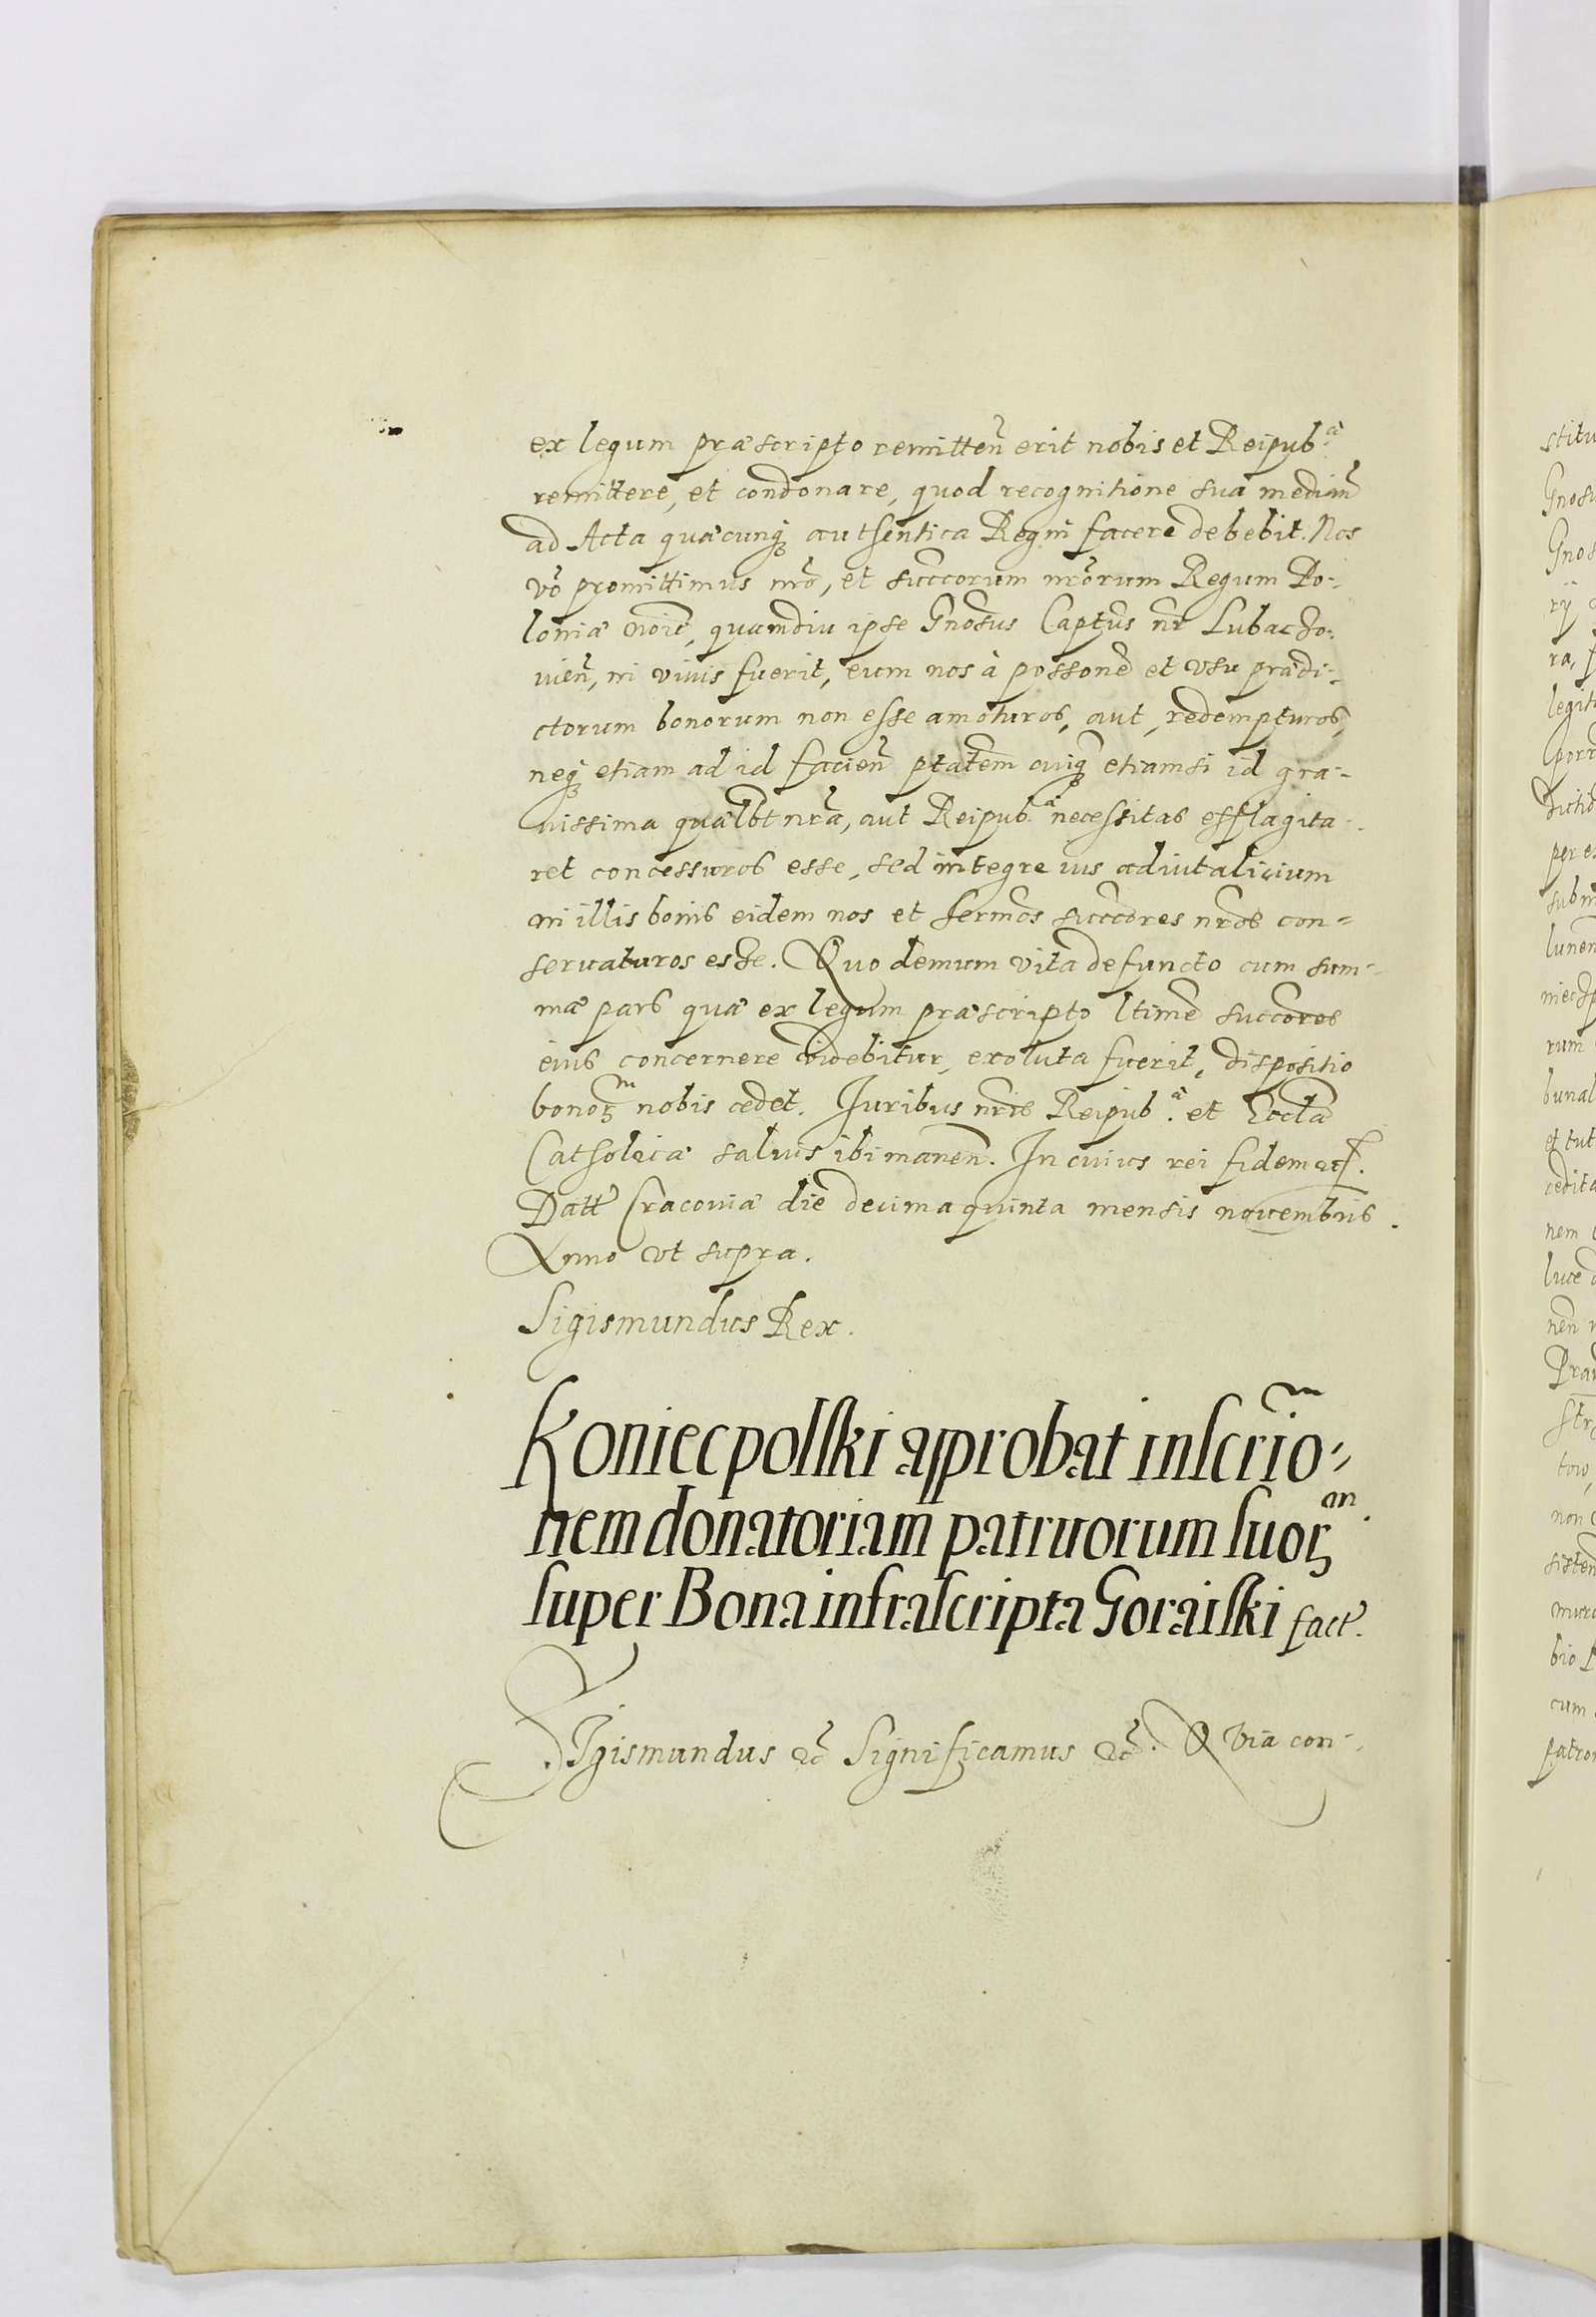 ex legum præscripto remitten̄ erit nobis et Reipub.ᵃ
remittere, et condonare, quod recognitione sua median̄
ad Acta quæcunq̢ authentica Regni facere debebit. Nos
vo͂ promittimus nr͂o, et succcorum nr͂orum Regum Po-
loniæ noīe, quamdiu ipse Gnosus Captus nr͂ Lubacho-
uien̄, in viuis fuerit, eum nos à possone͂ et vsu prædi-
ctorum bonorum non esse amoturos, aut, redempturos,
neq̢ etiam ad id facien̄ ptatem cuiq̢ etiamsi id gra-
uissima quælbt nr͂a, aut Reipub.ᵃ necessitas efflagita-
ret concessuros esse, sed integre ius aduitalicium
in illis bonis eidem nos et sermos succcores nr͂os con-
seruaturos esse. Quo demum vita defuncto cum sum-
mæ pars quæ ex legum præscripto ltime͂ succores
eius concernere videbitur, exoluta fuerit, dispositio
bonoꝝᵐ nobis cedet. Juribus nr͂is Reipub.ᵃ et Eccl͂æ
Catholicæ saluis ibi manen̄. In cuius rei fidem ꝛc̄.
Datt͂ Cracouiæ die decima quinta mensis nouembris.
Anno vt supra.
Sigismundus Rex.
Koniecpolski approbat inscrio͂-
nem donatoriam patruorum suoꝝᵐ.
super Bona infrascripta Goraiski fact͂.
SIgismundus ꝛc̄ Significamus ꝛc̄. Quia con-